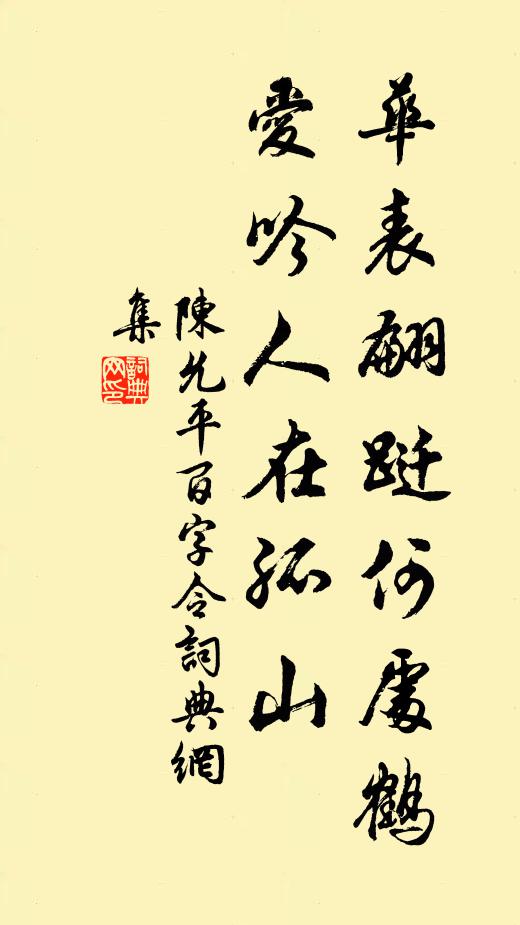 華表翩躚何處鶴
愛吟人在孤山
陳允平百字令詞典網
集
詞典
网印